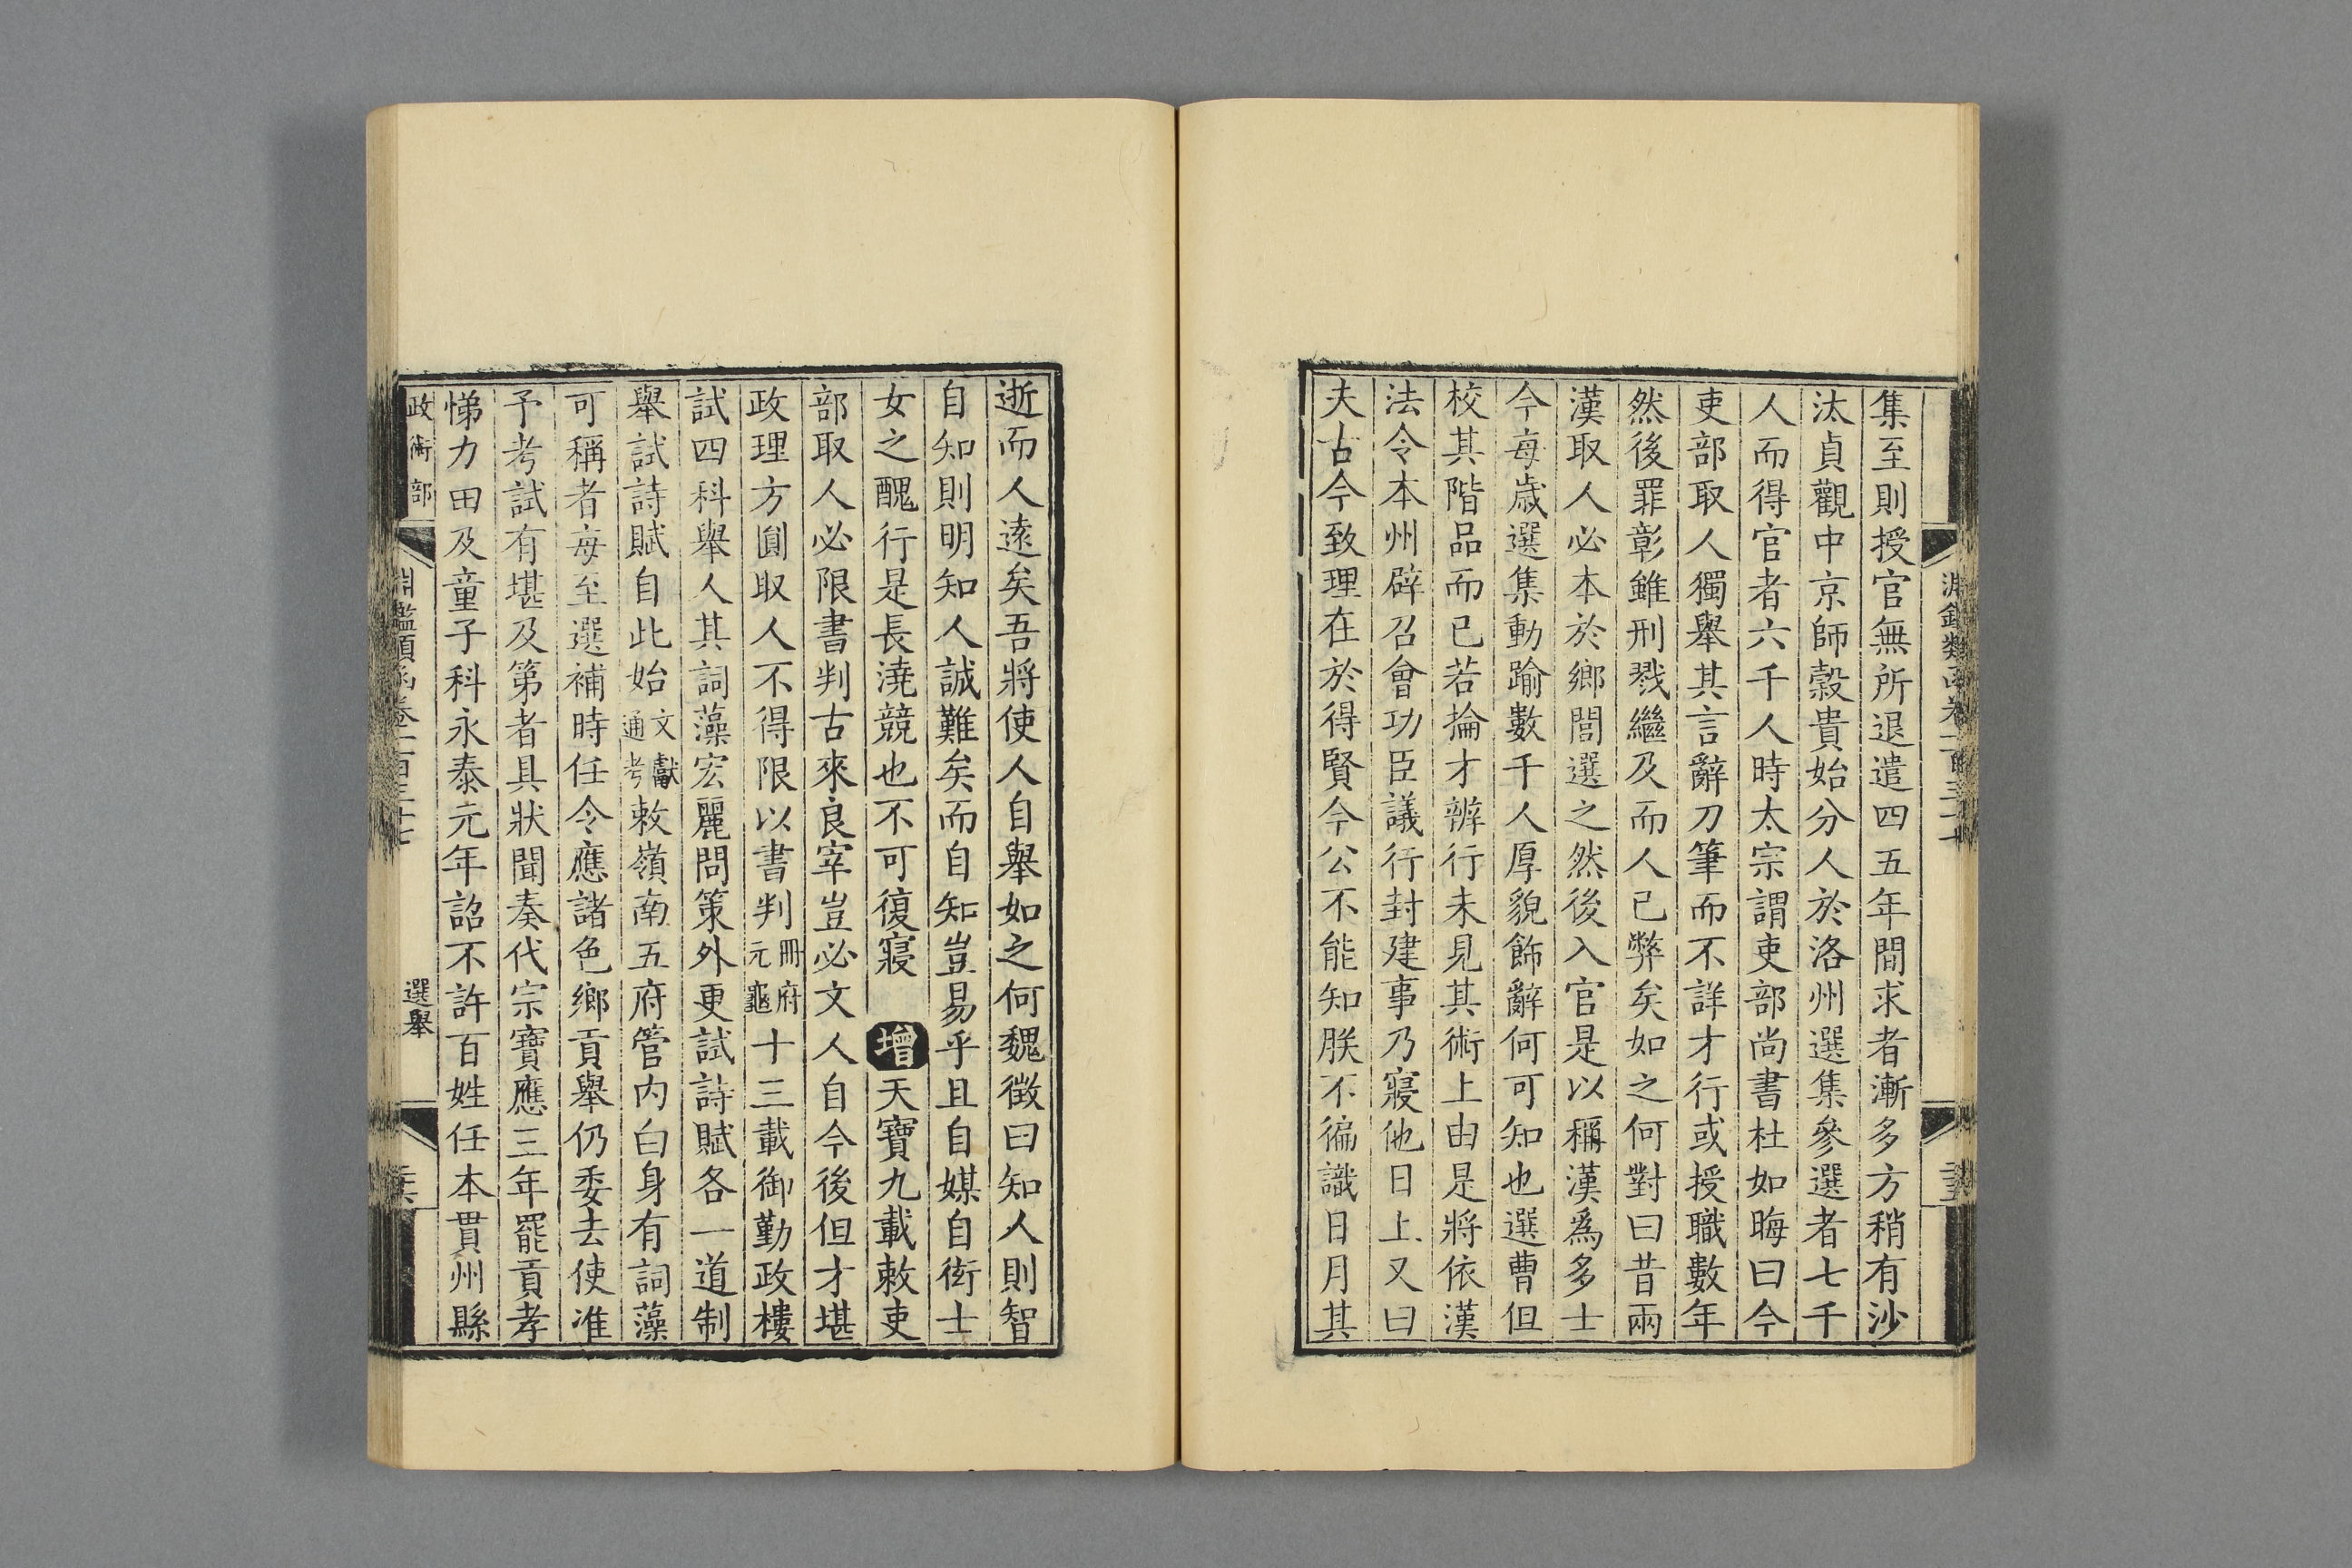 集至則授官無所退遣四五年間求者漸多方稍有沙
汰貞觀中京師穀貴始分人於洛州選集參選者七千
人而得官者六千人時太宗謂吏部尚書杜如晦曰今
吏部取人獨舉其言辭刀筆而不詳才行或授職數年
然後罪彰雖刑戮繼及而人已弊矣如之何對曰昔兩
漢取人必本於鄉閭選之然後入官是以稱漢爲多士
今每歲選集動踰數千人厚貌飾辭何可知也選曹但
校其階品而已若掄才辨行未見其術上由是將依漢
法令本州辟召會功臣議行封建事乃寢他日上又曰
夫古今致理在於得賢今公不能知朕不徧識日月其
逝而人遠矣吾將使人自舉如之何魏徵曰知人則智
自知則明知人誠難矣而自知豈易乎且自媒自衒士
女之醜行是長澆競也不可復寢 增天寶九載敕吏
部取人必限書判古來良宰豈必文人自今後但才堪
政理方圓取人不得限以書判冊府元龜十三載御勤政樓
試四科舉人其詞藻宏麗問策外更試詩賦各一道制
舉試詩賦自此始文獻通考敕嶺南五府管内白身有詞藻
可稱者每至選補時任令應諸色鄉貢舉仍委去使准
予考試有堪及第者具狀聞奏代宗寶應三年罷貢孝
悌力田及童子科永泰元年詔不許百姓任本貫州縣
政術部
淵鑑類函卷一百三十七
選舉